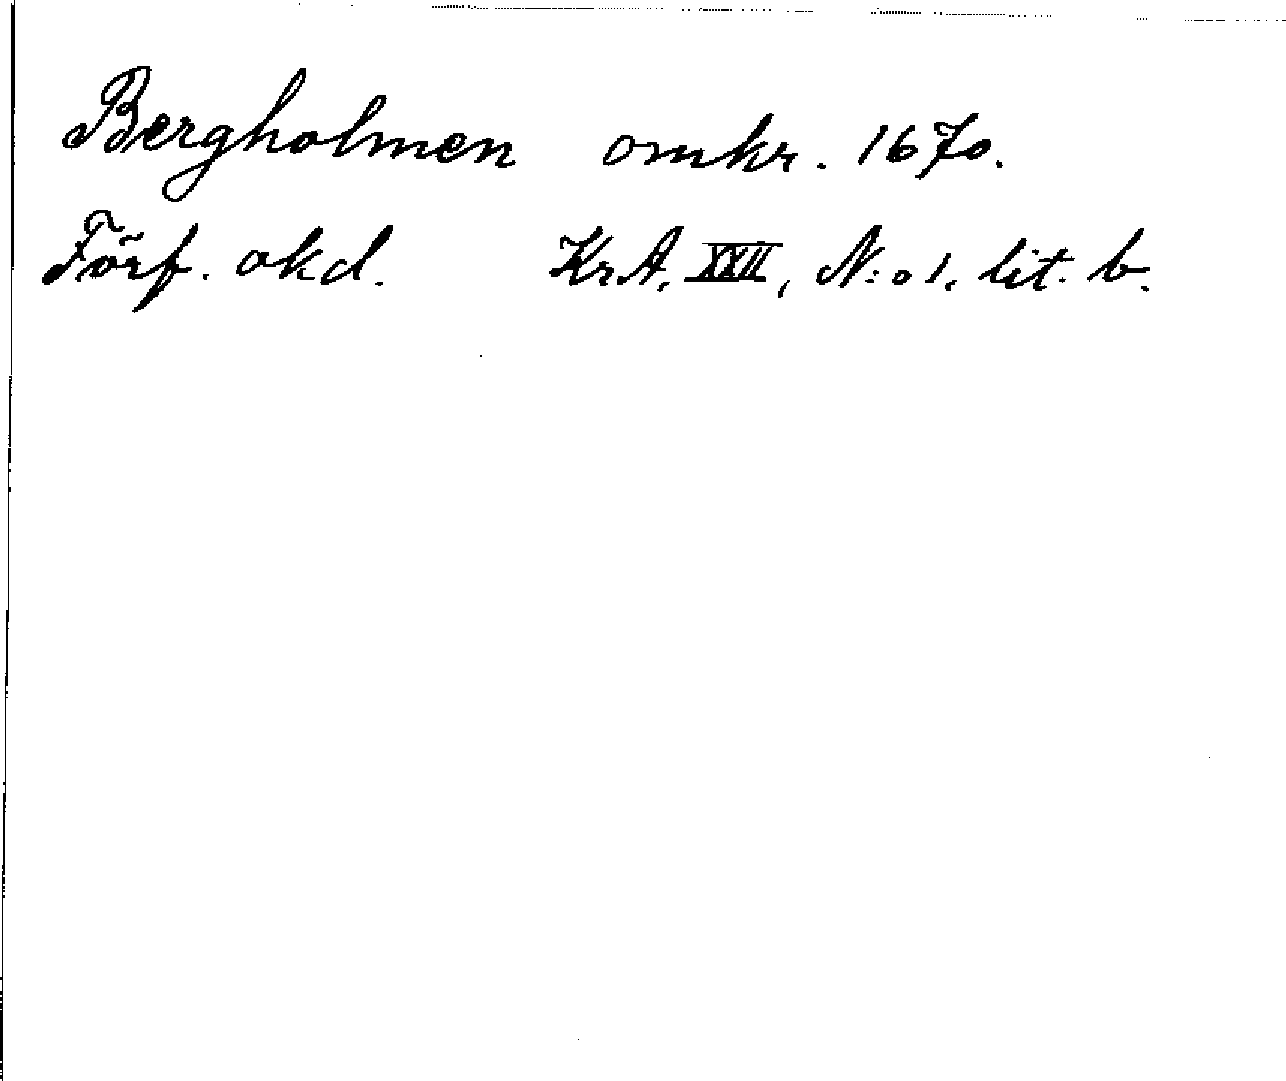 Bergholmen omkr. 1670.
Förf. okd. KrA. XXII, N:o 1. lit. b.